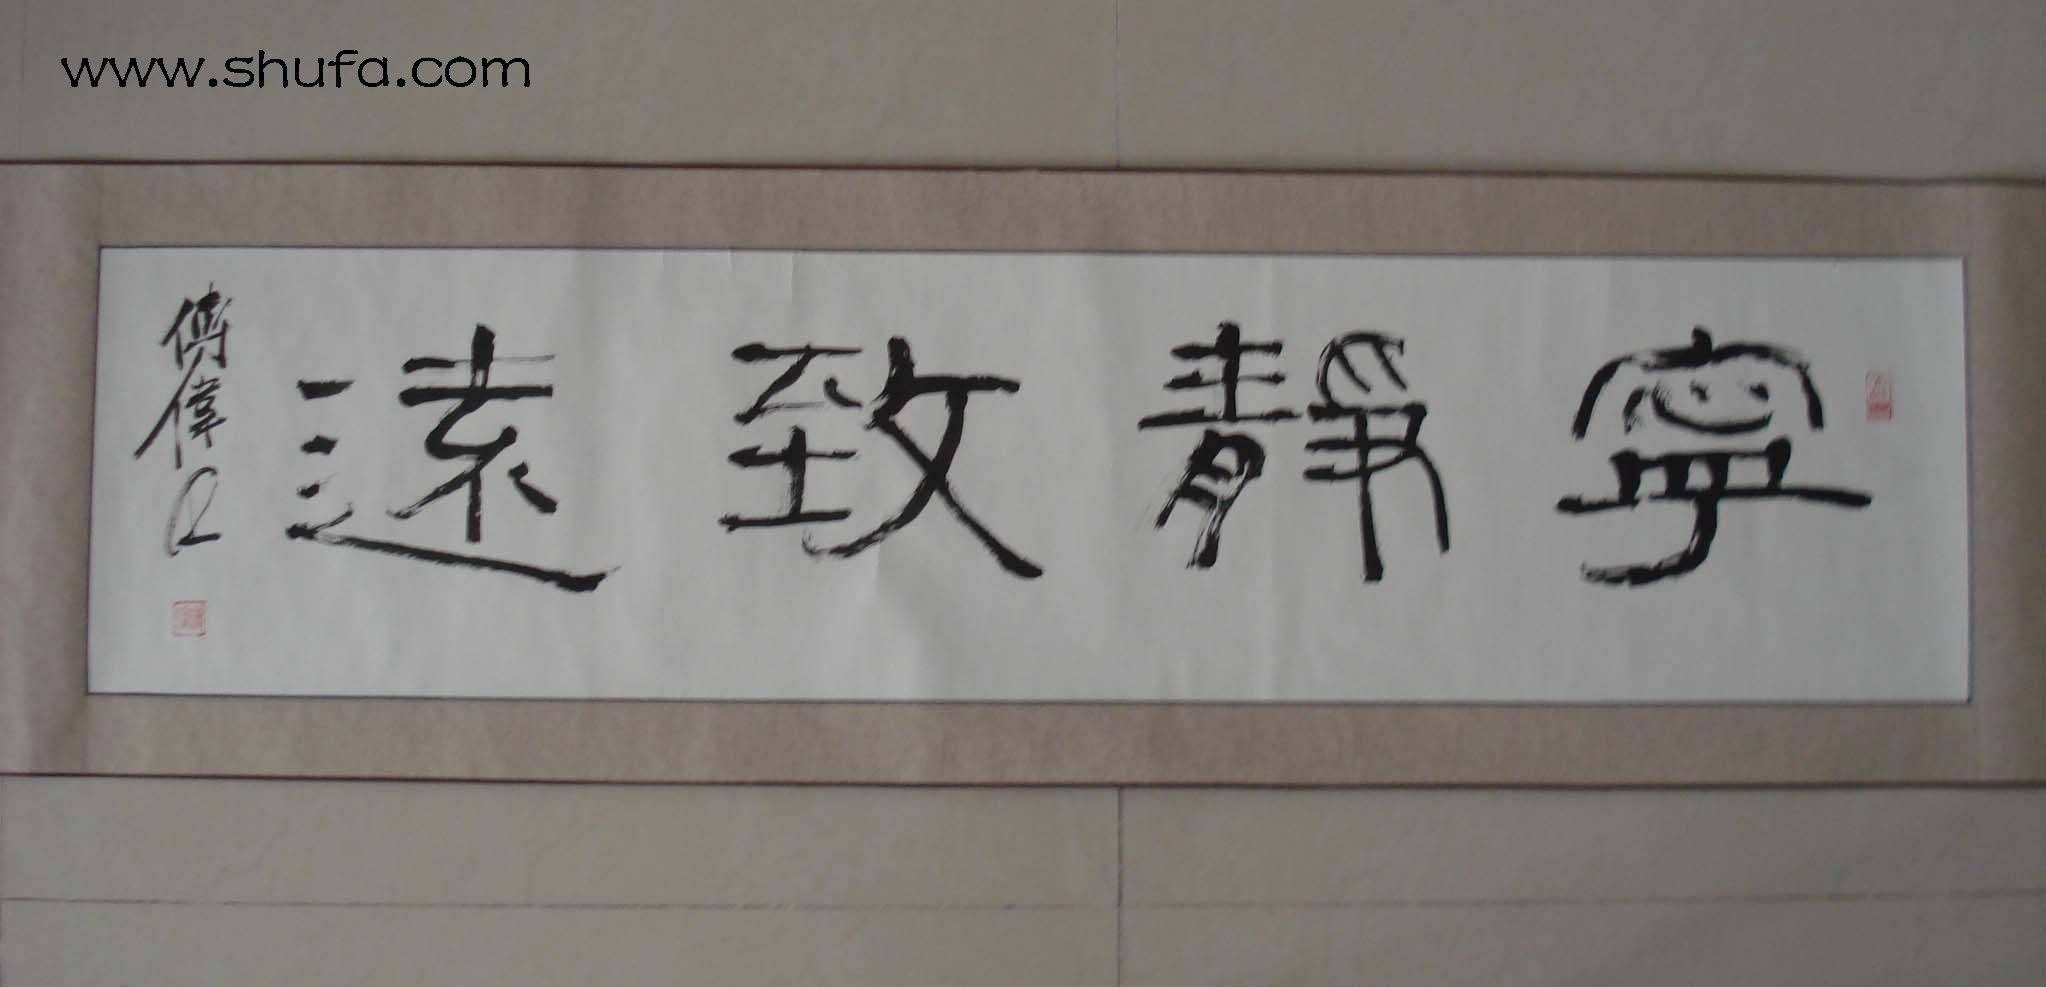 www.shufa.com
寧靜致遠
傅偉